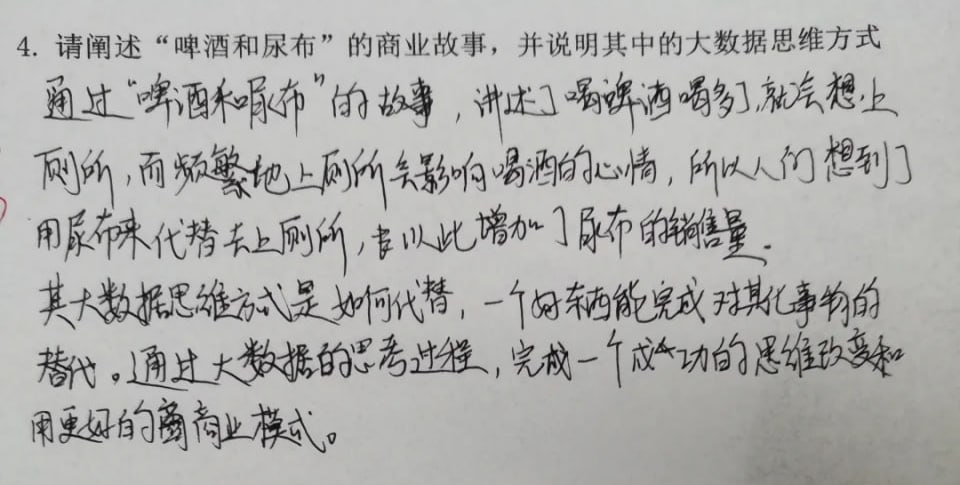 4. 请阐述“啤酒和尿布”的商业故事，并说明其中的大数据思维方式
通过“啤酒和尿布”的故事，讲述了喝啤酒喝多了，就会想上
厕所，而频繁地上厕所会影响喝酒的心情，所以人们想到了
用尿布来代替去上厕所，以此增加了尿布的销售量。
其大数据思维方式是如何代替，一个好东西能完成对其他事物的
替代。通过大数据的思考过程，完成一个成功的思维改变和
用更好的商业模式。